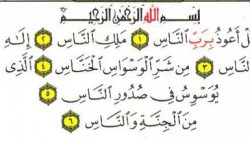 بِسْمِ اللهِ الرَّحْمٰنِ الرَّحِيْمِ
لْ أَعُوذُ بِرَبِّ النَّاسِ ١ مَلِكِ النَّاسِ ٢ إِلَٰهِ
النَّاسِ ٣ مِن شَرِّ الْوَسْوَاسِ الْخَنَّاسِ ٤ الَّذِي
يُوَسْوِسُ فِي صُدُورِ النَّاسِ ٥
مِنَ الْجِنَّةِ وَالنَّاسِ ٦